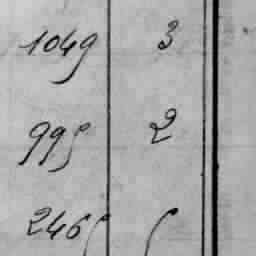 1049 3
995 2
2465